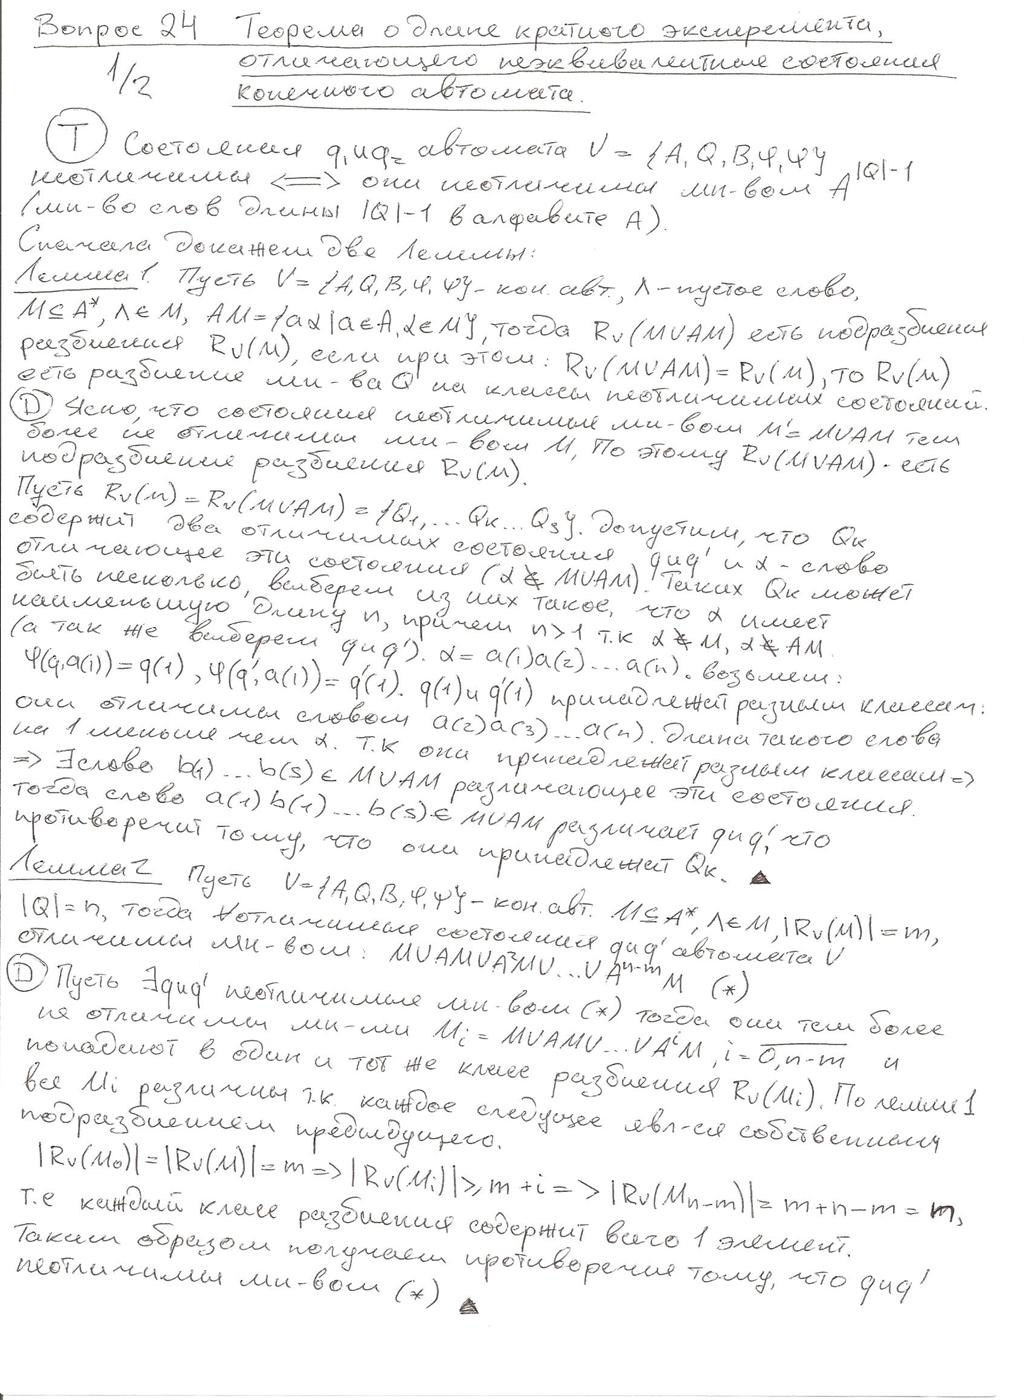 Вопрос 24 Теорема о длине кратного эксперимента,
отличающего неэквивалентные состояния
1/2 конечного автомата.
Т Состояния q₁ и q₂ автомата V = {A, Q, B, φ, ψ}
неотличимы <=> они неотличимы мн-вом A^|Q|-1
(мн-во слов длины |Q|-1 в алфавите A).
Сначала докажем две Леммы:
Лемма 1. Пусть V={A,Q,B,φ,ψ} - кон. авт., Λ - пустое слово,
M⊆A*, Λ∈M, AM={aα|a∈A, α∈M}, тогда Rv(MUAM) есть подразбиение
разбиения Rv(M), если при этом: Rv(MUAM)=Rv(M), то Rv(M)
есть разбиение мн-ва Q на классы неотличимых состояний.
Д Ясно, что состояния неотличимые мн-вом M'=MUAM тем
более не отличимы мн-вом M, По этому Rv(MUAM) - есть
подразбиение разбиения Rv(M).
Пусть Rv(M)=Rv(MUAM)={Q₁,...Qк...Qs}. Допустим, что Qк
содержит два отличимых состояния q и q' и α - слово
отличающее эти состояния (α∉MUAM). Таких Qк может
быть несколько, выберем из них такое, что α имеет
наименьшую длину n, причем n>1 т.к α∉M, α∉AM.
(а так же выберем q и q'). α=a(1)a(2)...a(n). возьмем:
φ(q,a(1))=q(1), φ(q',a(1))=q'(1). q(1) и q'(1) принадлежат разным классам:
они отличимы словом a(2)a(3)...a(n). Длина такого слова
на 1 меньше чем α. Т.К они принадлежат разным классам=>
=> ∃слово b(1)...b(s)∈MUAM различающее эти состояния.
тогда слово a(1)b(1)...b(s)∈MUAM различает q и q', что
противоречит тому, что они принадлежат Qк. ▲
Лемма 2 Пусть V={A,Q,B,φ,ψ} - кон. авт. M⊆A*, Λ∈M, |Rv(M)|=m,
|Q|=n, тогда ∀отличимые состояния q и q' автомата V
отличимы мн-вом: MUAMUA²MU...UAⁿ⁻ᵐM (*)
Д Пусть ∃q и q' неотличимые мн-вом (*) тогда они тем более
не отличимы мн-ми Mᵢ=MUAMU...UAⁱM, i=0,n-m и
попадают в один и тот же класс разбиения Rv(Mᵢ). По лемме 1
все Mᵢ различны т.к. каждое следующее явл-ся собственным
подразбиением предыдущего.
|Rv(M₀)|=|Rv(M)|=m=>|Rv(Mᵢ)|≥m+i=>|Rv(Mn-m)|=m+n-m=m,
т.е каждый класс разбиения содержит всего 1 элемент.
Таким образом получаем противоречие тому, что q и q'
неотличимы мн-вом (*) ▲